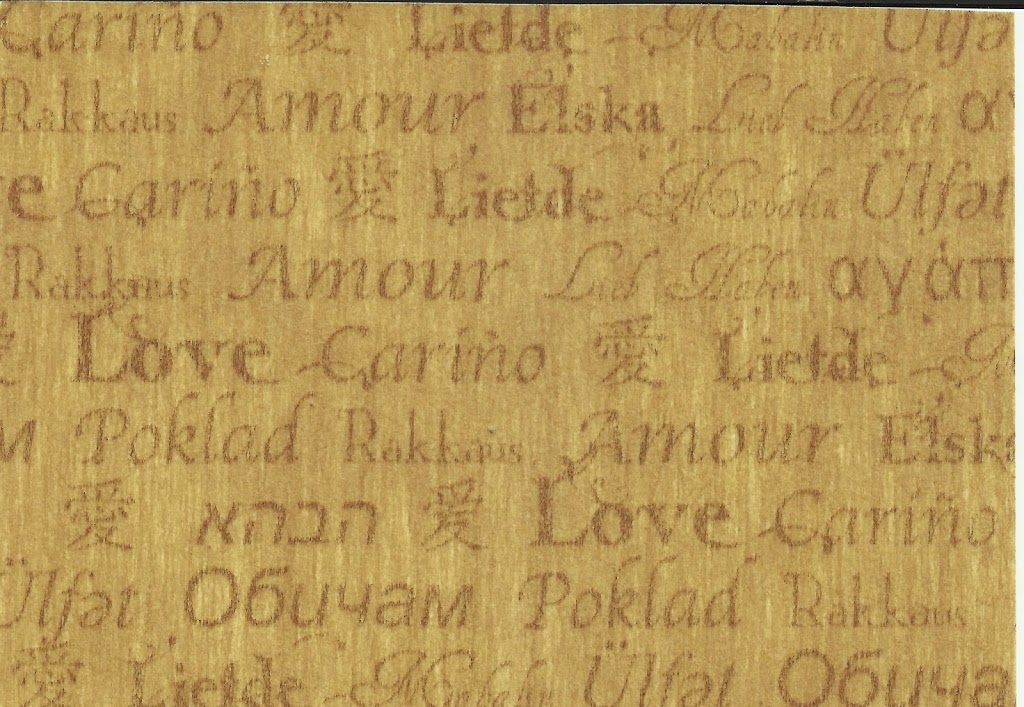 Cariño 愛 Liefde Mahalin Ülfə
Rakkaus Amour Elska Lieb Haben αγ
ve Cariño 愛 Liefde Mahalin Ülfət
Rakkaus Amour Lieb Haben αγάπ
Love Cariño 愛 Liefde
м Poklad Rakkaus Amour Elska
愛 הבהא 爱 Love Cariño
Ülfət Обичам Poklad Rakkaus
愛 Liefde Mahalin Ülfət Обича